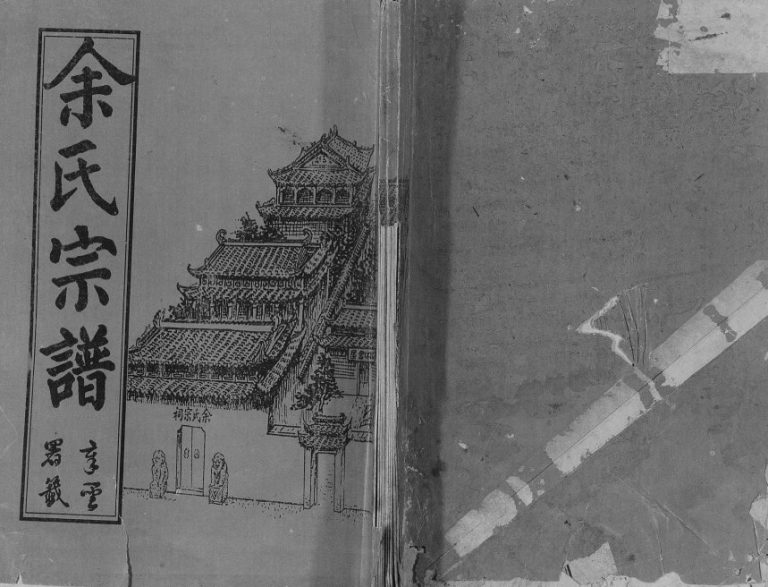 余氏宗譜
署籤
余氏宗祠